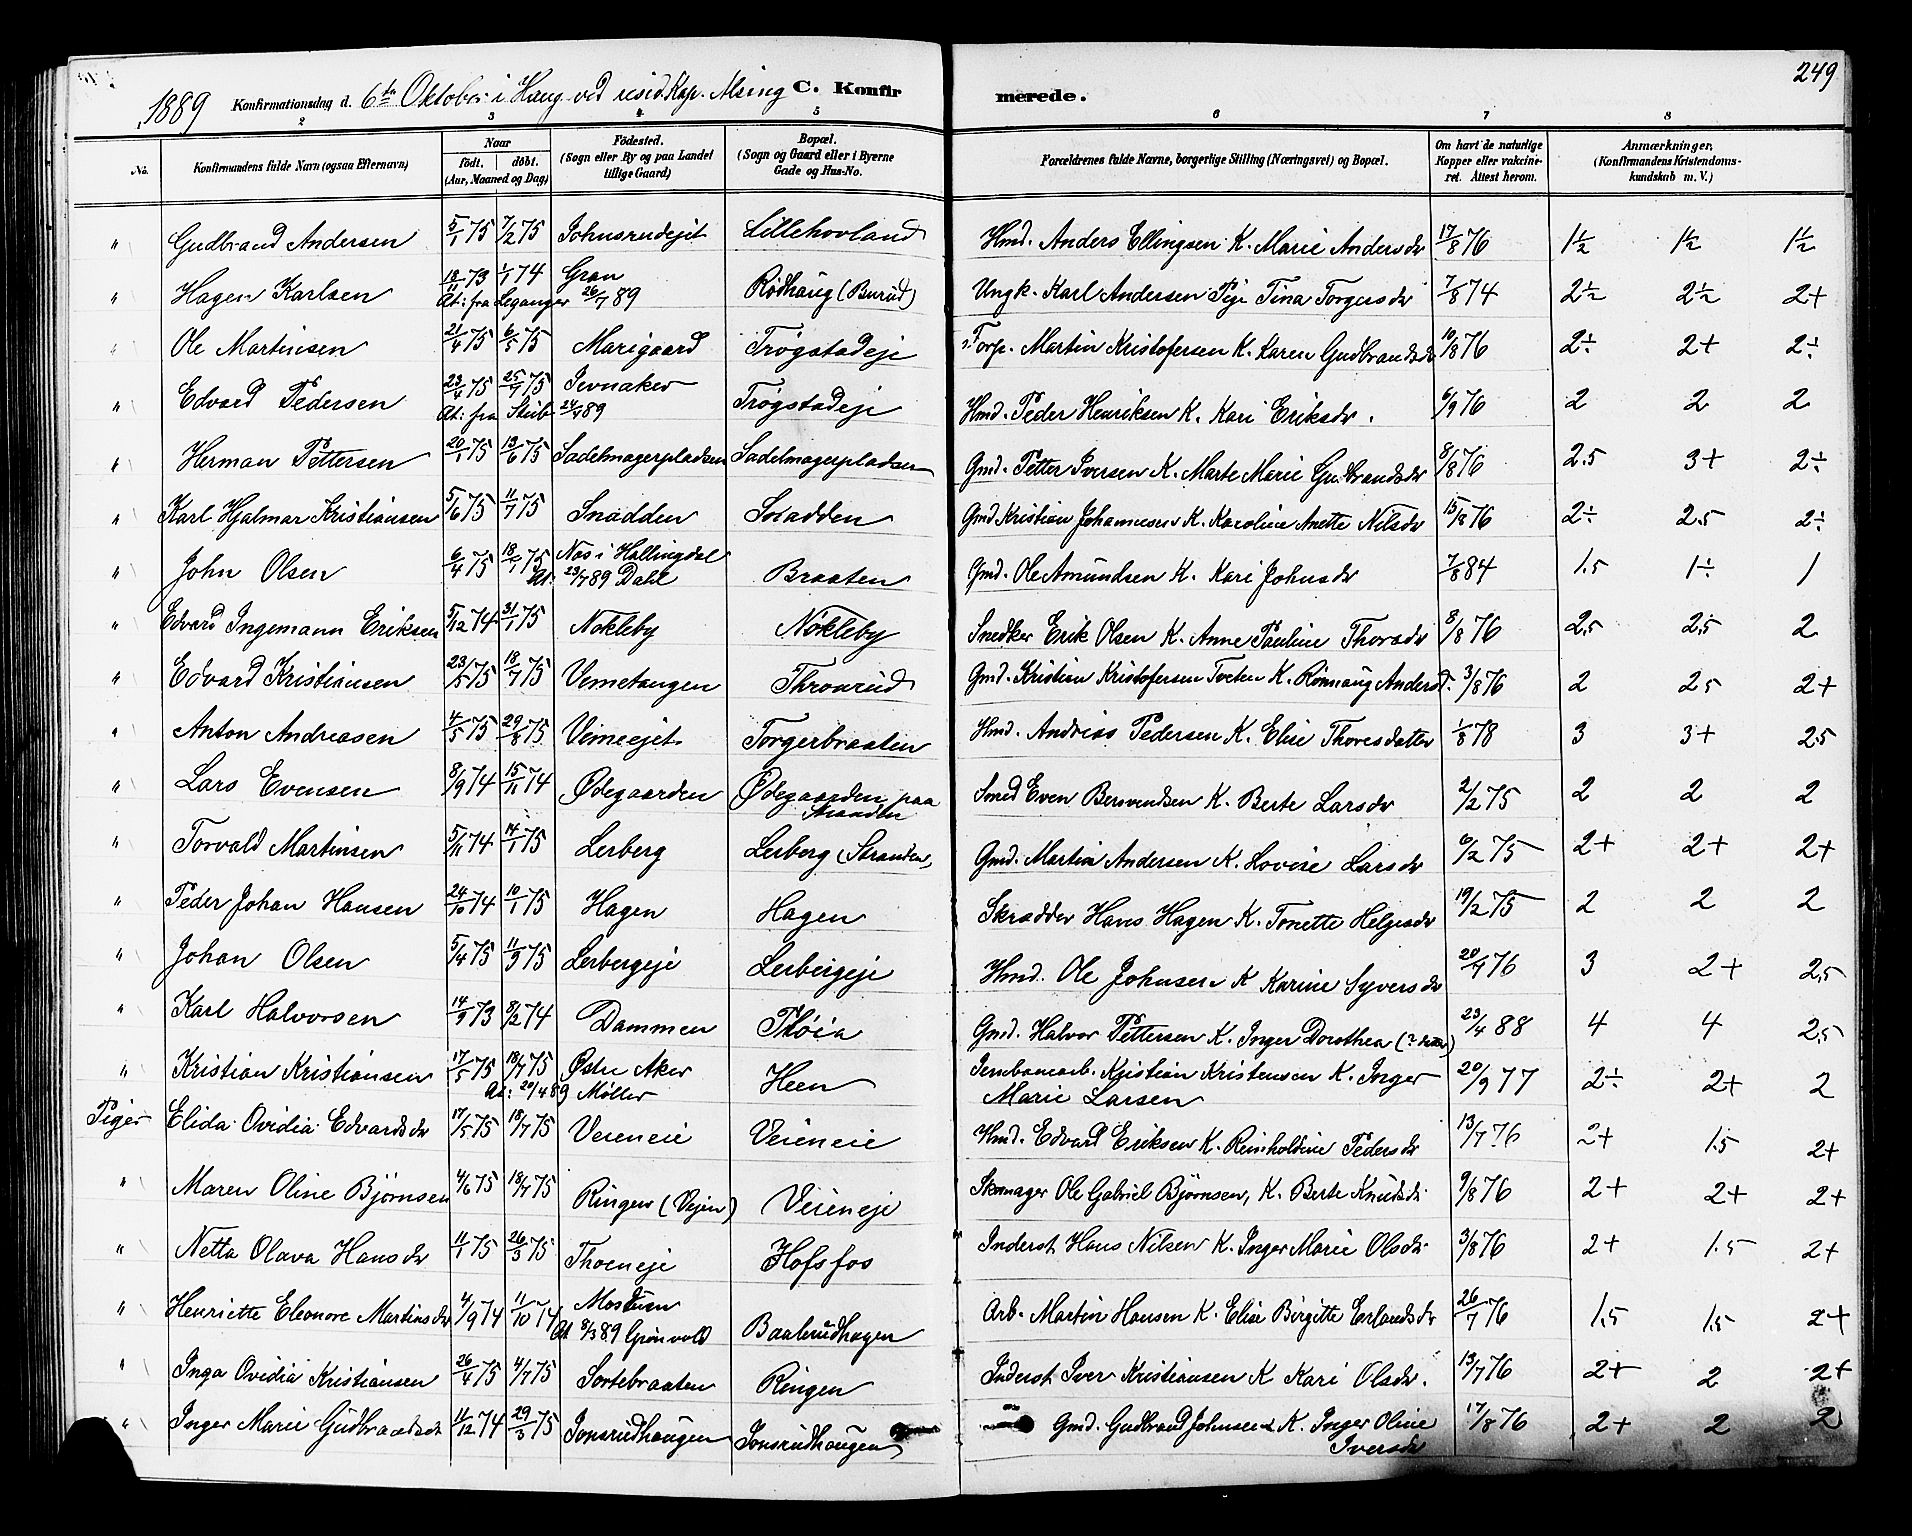 249
1889 Konfirmationsdag d. 6te Oktober i Haug ved resid. Kap. Alsing C. Konfirmerede.
2 3 4 5 6 7 8
No. Konfirmandens fulde Navn (ogsaa Efternavn) Naar født, døbt. (Aar, Maaned og Dag) Fødested. (Sogn eller By og paa Landet tillige Gaard) Bopæl. (Sogn og Gaard eller i Byerne Gade og Hus-No. Forældrenes fulde Navne, borgerlige Stilling (Næringsvei) og Bopæl. Om havt de naturlige Kopper eller vakcineret. Attest herom. Anmærkninger, (Konfirmandens Kristendomskundskab m. V.)
" Gudbrand Andersen 5/1 75 7/2 75 Johnsrudejet Lillehovland Hmd. Anders Ellingsen K. Marie Andersdr 17/8 76 1½ 1½ 1½
" Hagen Karlsen 18/11 73 1/1 74 Gran Rødhaug (Burud) Ungk. Karl Andersen Pige Tina Torgersdr 7/8 74 2½ 2½ 2+
At: fra Leganger 26/7 89
" Ole Martinsen 21/4 75 6/5 75 Marigaard Trøgstadeje Torp. Martin Kristofersen K. Karen Gudbrandsdr 10/8 76 2÷ 2+ 2÷
" Edvard Pedersen 23/4 75 25/7 75 Jevnaker Trøgstadeje Hmd. Peder Henriksen K. Kari Eriksdr. 6/9 76 2 2 2
At: fra Stub 24/7 89
" Herman Pettersen 20/1 75 13/6 75 Sadelmagerpladsen Sadelmagerpladsen Gmd. Petter Iversen K. Marte Marie Gudbrandsdr 8/8 76 2.5 3+ 2÷
" Karl Hjalmar Kristiansen 5/6 75 11/7 75 Snadden Snadden Gmd. Kristian Johannesen K. Karoline Anette Nilsdr 15/8 76 2÷ 2.5 2÷
" John Olsen 6/4 75 18/1 75 Næs i Hallingdal Braaten Gmd. Ole Amundsen K. Kari Johnsdr 7/8 84 1.5 1÷ 1
At: 23/7 89 Dahl
" Edvard Ingemann Eriksen 5/12 74 31/1 75 Nokleby Nokleby Snedker Erik Olsen K. Anne Pauline Thorsdr 8/8 76 2.5 2.5 2
" Edvard Kristiansen 23/5 75 18/7 75 Vemetangen Thronrud Gmd. Kristian Kristofersen Tveten K. Rønnaug Andersd. 3/8 76 2 2.5 2+
" Anton Andreasen 4/5 75 29/8 75 Vemeejet Torgerbraaten Hmd. Andreas Pedersen K. Elise Thoresdatter 1/8 78 3 3+ 2.5
" Lars Evensen 8/9 74 15/11 74 Ødegaarden Ødegaarden paa Stranden Smed Even Bersvendsen K. Berte Larsdr 2/2 75 2 2 2
" Torvald Martinsen 5/11 74 14/1 75 Lerberg Lerberg (Stranden) Gmd. Martin Andersen K. Lovise Larsdr 6/2 75 2+ 2+ 2+
" Peder Johan Hansen 24/10 74 10/1 75 Hagen Hagen Skrædder Hans Hagen K. Tonette Helgesdr 19/2 75 2 2 2
" Johan Olsen 5/4 75 11/7 75 Lerbergeje Lerbergeje Hmd. Ole Johnsen K Karine Syversdr 20/7 76 3 2+ 2.5
" Karl Halvorsen 14/9 73 8/2 74 Dammen Thøia Gmd. Halvor Pettersen K. Inger Dorothea 23/4 88 4 4 2.5
" Kristian Kristiansen 17/5 75 18/7 75 Østre Aker Heen Jernbanearb. Kristian Kristensen K. Inger 20/9 77 2÷ 2+ 2
At: 20/4 89 Møller Marie Larsen
Piger Elida Ovidia Edvardsdr 17/5 75 18/7 75 Veieneie Veieneie Hmd. Edvard Eriksen K. Reinholdine Pedersdr 13/7 76 2+ 1.5 2+
" Maren Oline Bjørnsen 4/6 75 18/7 75 Ringen (Vejen) Veieneje Skomager Ole Gabriel Bjørnsen, K. Berte Knudsd: 9/8 76 2+ 2+ 2+
" Netta Olava Hansdr 11/1 75 26/3 75 Thoeneje Hofsfos Inderst Hans Nilsen K. Inger Marie Olsdr. 3/8 76 2+ 1.5 2+
" Henriette Eleonore Martinsdr 4/9 74 11/10 74 Modum Baalerudhagen Arb. Martin Hansen K. Elise Birgitte Erlandsdr 26/7 76 1.5 1.5 2+
At 8/3 89 Grønvold
" Inga Ovidia Kristiansen 26/4 75 4/7 75 Sortebraaten Ringen Inderst Iver Kristiansen K Kari Olsdr. 13/7 76 2+ 2 2+
" Inger Marie Gudbrandsdr 11/12 74 29/3 75 Jonsrudhaugen Jonsrudhaugen Gmd. Gudbrand Johnsen K. Inger Oline 17/8 76 2+ 2 2
Iversdr